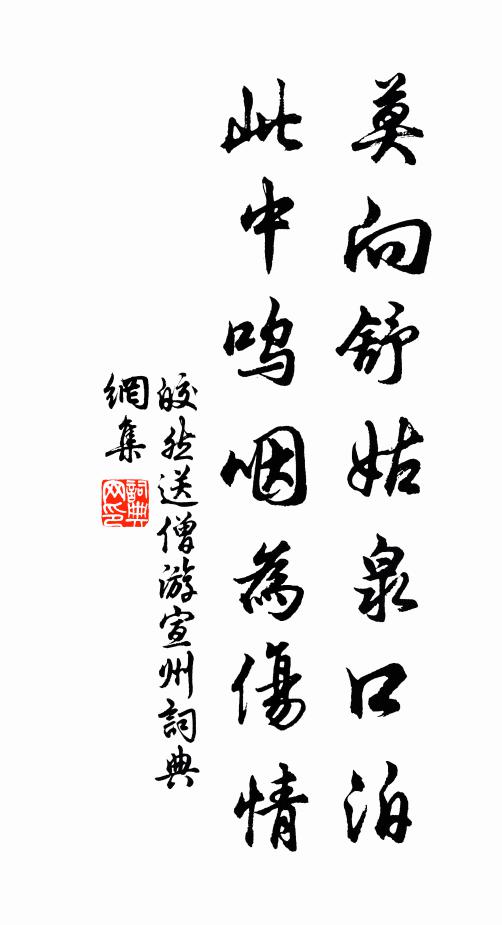 莫向舒姑泉口泊
此中呜咽為傷情
皎然送僧游宣州詞典
網集
詞典網印